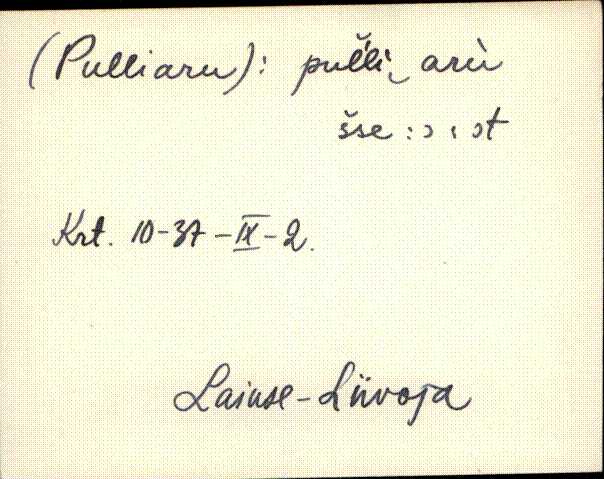 (Pulliaru): pul̆l̆i‿ arù
šse :ɔ ‹ ɔt
Krt. 10-37-IX-2.
Laiuse-Liivoja